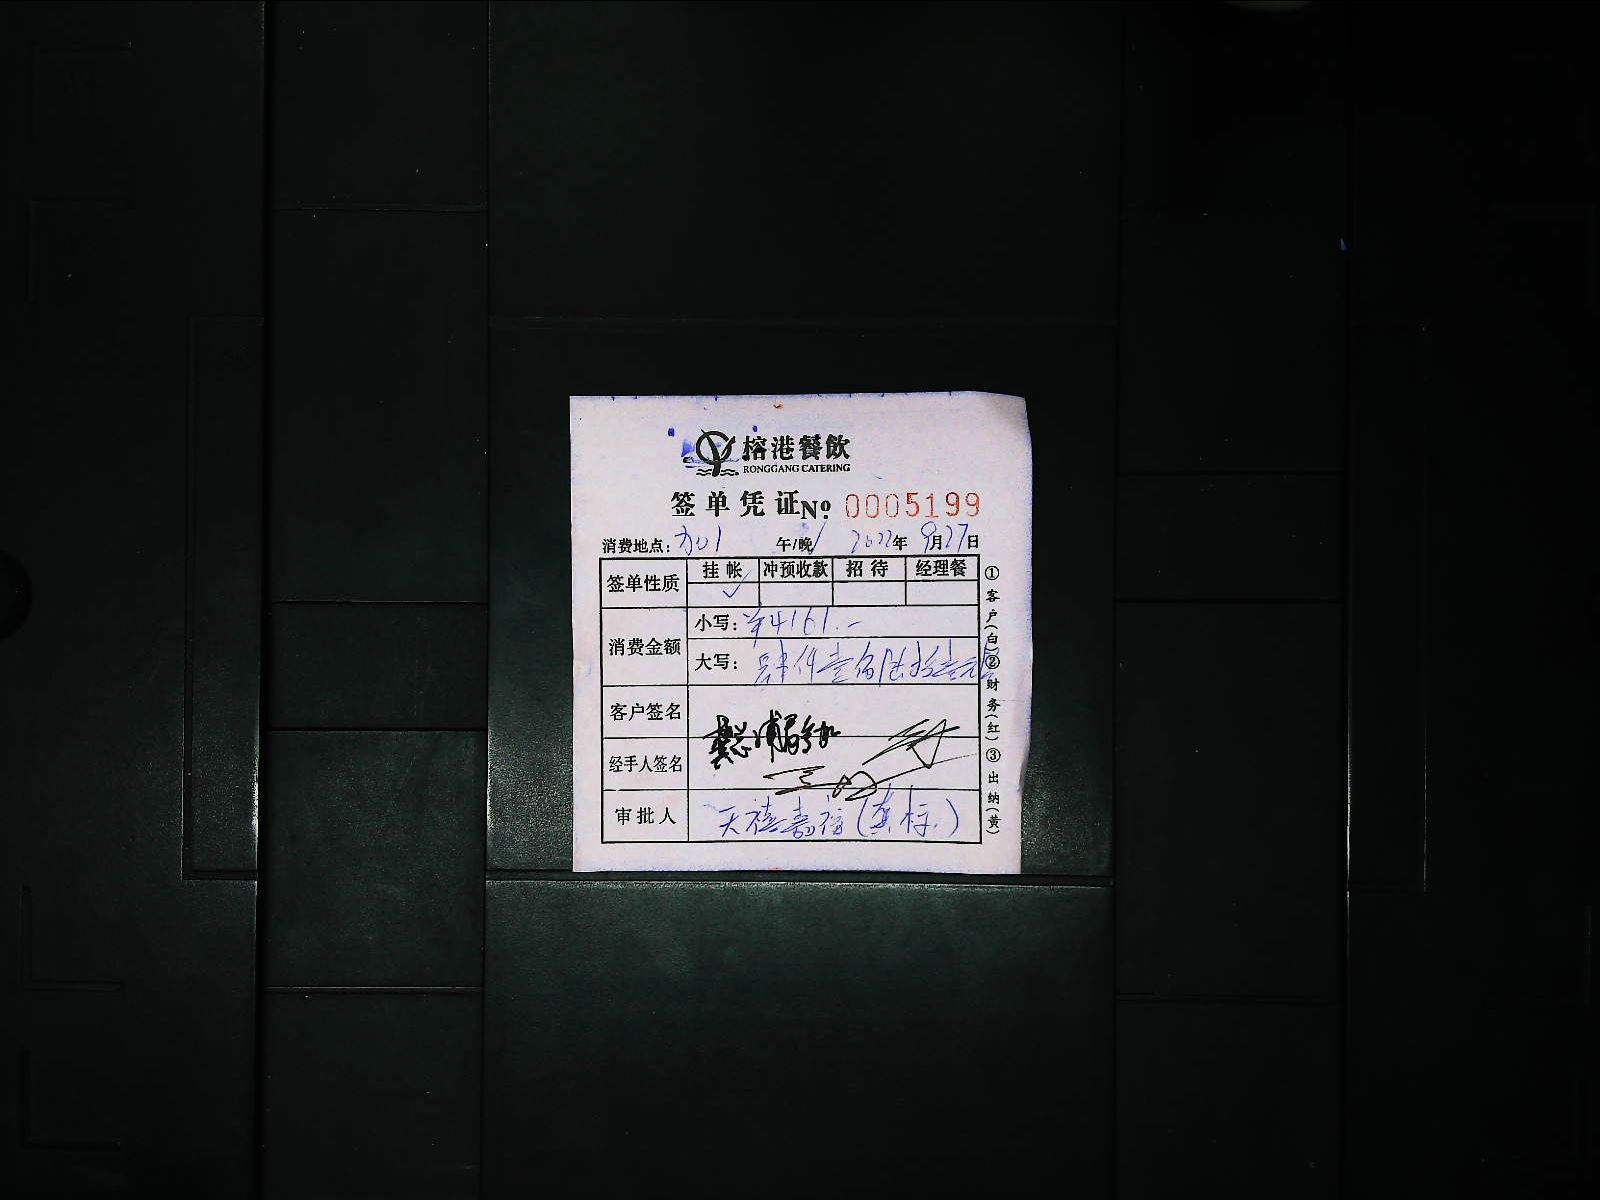 榕港餐飲
RONGGANG CATERING
签单凭证 Nº 0005199
消费地点: 午/晚 2022年9月27日
签单性质 挂帐 冲预收款 招待 经理餐
✓
消费金额 小写: ¥4161.-
大写: 肆仟壹佰陆拾壹元
客户签名
经手人签名
审批人 天禧嘉福
①客户(白)②财务(红)③出纳(黄)